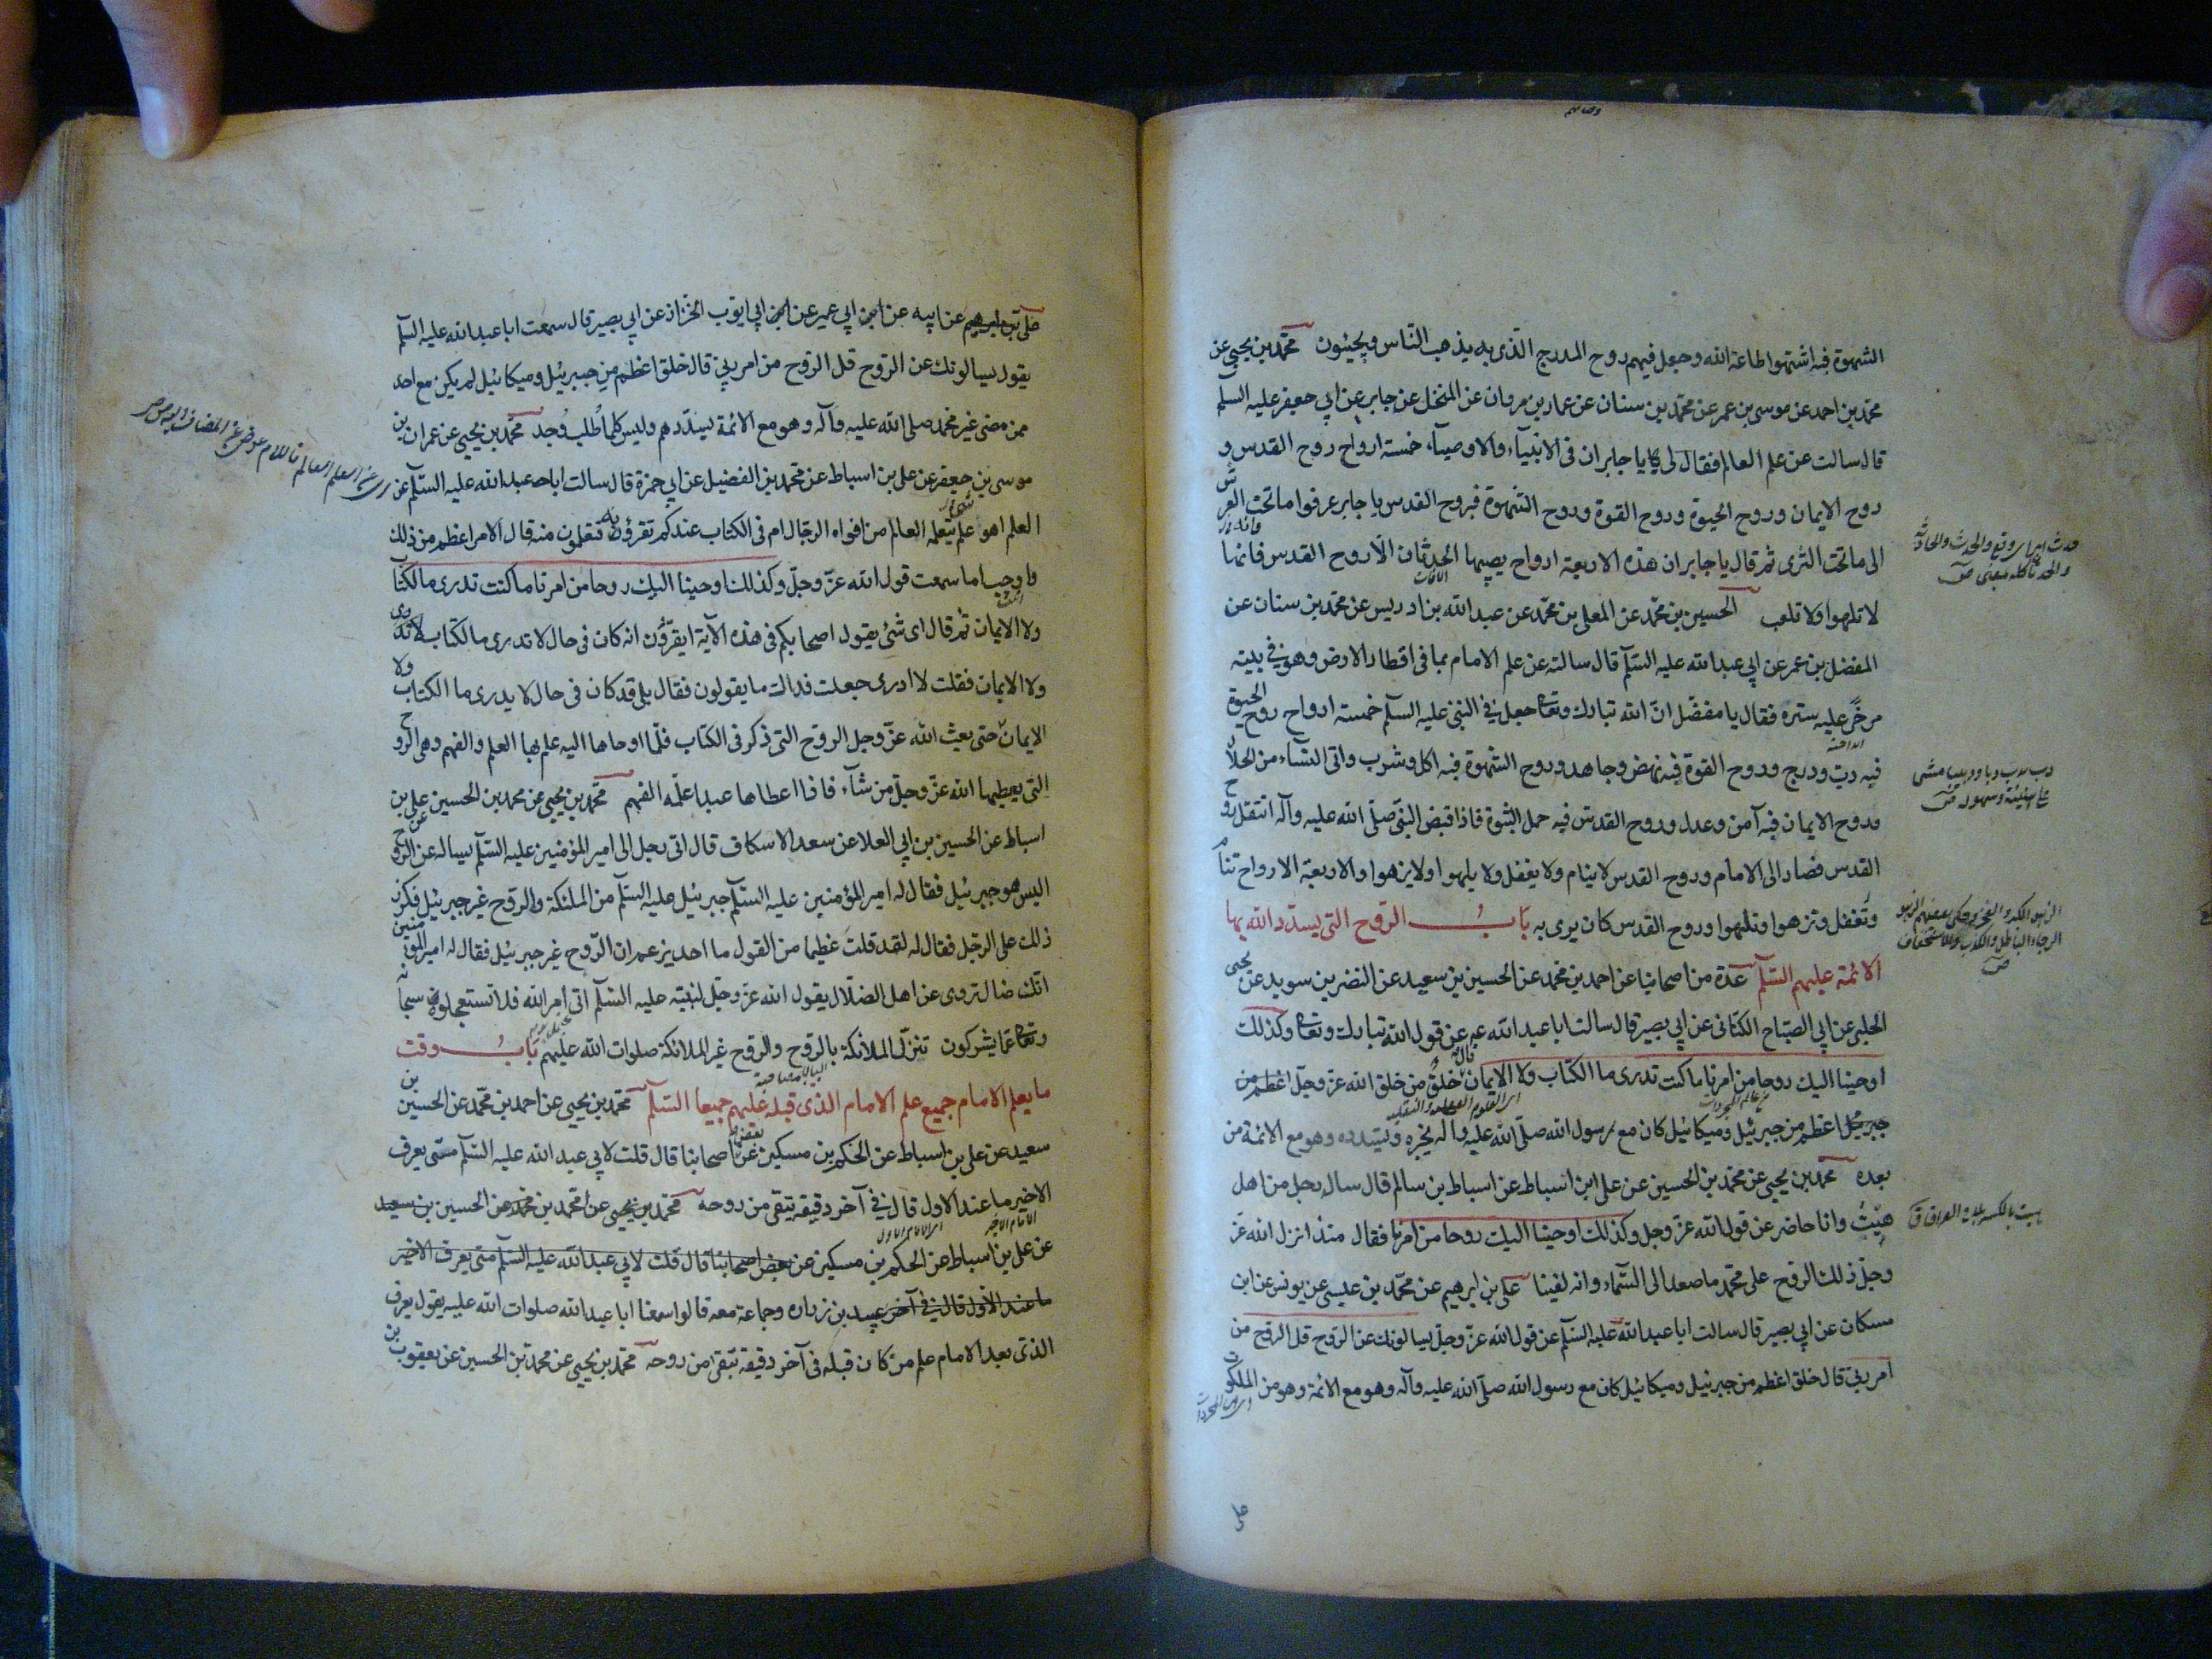 الشهوة فبه اشتهوا طاعة الله وجعل فيهم روح المدرج الذى به يذهب الناس ويجيئون محمد بن يحيى عن
محمد بن احمد عن موسى بن عمر عن محمد بن سنان عن عمار بن مروان عن المنخل عن جابر عن ابى جعفر عليه السلم
قال سالت عن علم العالم فقال لى يا جابر ان فى الانبياء والاوصياء خمسة ارواح روح القدس و
روح الايمان وروح الحيوة وروح القوة وروح الشهوة فبروح القدس يا جابر عرفوا ما تحت العرش
الى ما تحت الثرى ثم قال يا جابر ان هذه الاربعة ارواح يصيبها الحدثان الا روح القدس فانها
لا تلهوا ولا تلعب الحسين بن محمد عن المعلى بن محمد عن عبد الله بن ادريس عن محمد بن سنان عن
المفضل بن عمر عن ابى عبد الله عليه السلم قال سالته عن علم الامام بما فى اقطار الارض وهو فى بيته
مرخى عليه ستره فقال يا مفضل ان الله تبارك وتعا جعل فى النبى عليه السلم خمسة ارواح روح الحيوة
فيه دب ودرج وروح القوة فبه نهض وجاهد وروح الشهوة فبه اكل وشرب واتى النساء من الحلال
وروح الايمان فبه آمن وعدل وروح القدس فبه حمل النبوة فاذا قبض النبى صلى الله عليه وآله انتقل روح
القدس فصار الى الامام وروح القدس لا ينام ولا يغفل ولا يلهوا ولا يزهوا والاربعة الارواح تنام
وتغفل وتزهوا وتلهوا وروح القدس كان يرى به باب الروح التى يسدد الله بها
الائمة عليهم السلم عدة من اصحابنا عن احمد بن محمد عن الحسين بن سعيد عن النضر بن سويد عن يحيى
الحلبى عن ابى الصباح الكنانى عن ابى بصير قال سالت ابا عبد الله عن قول الله تبارك وتعا وكذلك
اوحينا اليك روحا من امرنا ما كنت تدرى ما الكتاب ولا الايمان قال خلق من خلق الله عز وجل اعظم من
جبرئيل اعظم من جبرئيل وميكائيل كان مع رسول الله صلى الله عليه وآله يخبره ويسدده وهو مع الائمة من
بعده محمد بن يحيى عن محمد بن الحسين عن على ابن اسباط عن اسباط بن سالم قال ساله رجل من اهل
هيت وانا حاضر عن قول الله عز وجل وكذلك اوحينا اليك روحا من امرنا فقال منذ انزل الله عز
وجل ذلك الروح على محمد ما صعد الى السماء وانه لفينا على بن ابرهيم عن محمد بن عيسى عن يونس عن ابن
مسكان عن ابى بصير قال سالت ابا عبد الله عليه السلم عن قول الله عز وجل يسالونك عن الروح قل الروح من
امر ربى قال خلق اعظم من جبرئيل وميكائيل كان مع رسول الله صلى الله عليه وآله وهو مع الائمة وهو من الملكوت
على بن ابرهيم عن ابيه عن ابن ابى عمير عن ابى ايوب الخزاز عن ابى بصير قال سمعت ابا عبد الله عليه السلم
يقول يسالونك عن الروح قل الروح من امر ربى قال خلق اعظم من جبرئيل وميكائيل لم يكن مع احد
ممن مضى غير محمد صلى الله عليه وآله وهو مع الائمة يسددهم وليس كلما طلب وجد محمد بن يحيى عن عمران بن
موسى بن جعفر عن على بن اسباط عن محمد بن الفضيل عن ابى حمزة قال سالت ابا عبد الله عليه السلم عن
العلم اهو علم يتعلمه العالم من افواه الرجال ام فى الكتاب عندكم تقرؤنه فتعلمون منه قال الامر اعظم من ذلك
واوجب اما سمعت قول الله عز وجل وكذلك اوحينا اليك روحا من امرنا ما كنت تدرى ما الكتاب
ولا الايمان ثم قال اى شئ يقول اصحابكم فى هذه الآية ايقرؤن انه كان فى حال لا تدرى ما الكتاب
ولا الايمان فقلت لا ادرى جعلت فداك ما يقولون فقال بلى قد كان فى حال لا يدرى ما الكتاب ولا
الايمان حتى بعث الله عز وجل الروح التى ذكر فى الكتاب فلما اوحاها اليه علم بها العلم والفهم وهى الروح
التى يعطيها الله عز وجل من شاء فاذا اعطاها عبدا علمه الفهم محمد بن يحيى عن محمد بن الحسين عن على بن
اسباط عن الحسين بن ابى العلا عن سعد الاسكاف قال اتى رجل الى امير المؤمنين عليه السلم يساله عن الروح
اليس هو جبرئيل فقال له امير المؤمنين عليه السلم جبرئيل عليه السلم من الملئكة والروح غير جبرئيل فكرر
ذلك على الرجل فقال له لقد قلت عظيما من القول ما احد يزعم ان الروح غير جبرئيل فقال له امير المؤمنين
انك ضال تروى عن اهل الضلال يقول الله عز وجل لنبيه عليه السلم اتى امر الله فلا تستعجلوه سبحانه
وتعا عما يشركون تنزل الملائكة بالروح والروح غير الملائكة صلوات الله عليهم باب وقت
ما يعلم الامام جميع علم الامام الذى قبله عليهم جميعا السلم محمد بن يحيى عن احمد بن محمد عن الحسين بن
سعيد عن على بن اسباط عن الحكم بن مسكين عن بعض اصحابنا قال قلت لابى عبد الله عليه السلم متى يعرف
الاخير ما عند الاول قال فى آخر دقيقة تبقى من روحه محمد بن يحيى عن محمد بن محمد عن الحسين بن سعيد
عن على بن اسباط عن الحكم بن مسكين عن بعض اصحابنا قال قلت لابى عبد الله عليه السلم متى يعرف الاخير
ما عند الاول قال فى آخر عبيد بن زرارة وجماعة معه قالوا سمعنا ابا عبد الله صلوات الله عليه يقول يعرف
الذى بعد الامام علم من كان قبله فى آخر دقيقة تبقى من روحه محمد بن يحيى عن محمد بن الحسين عن يعقوب بن